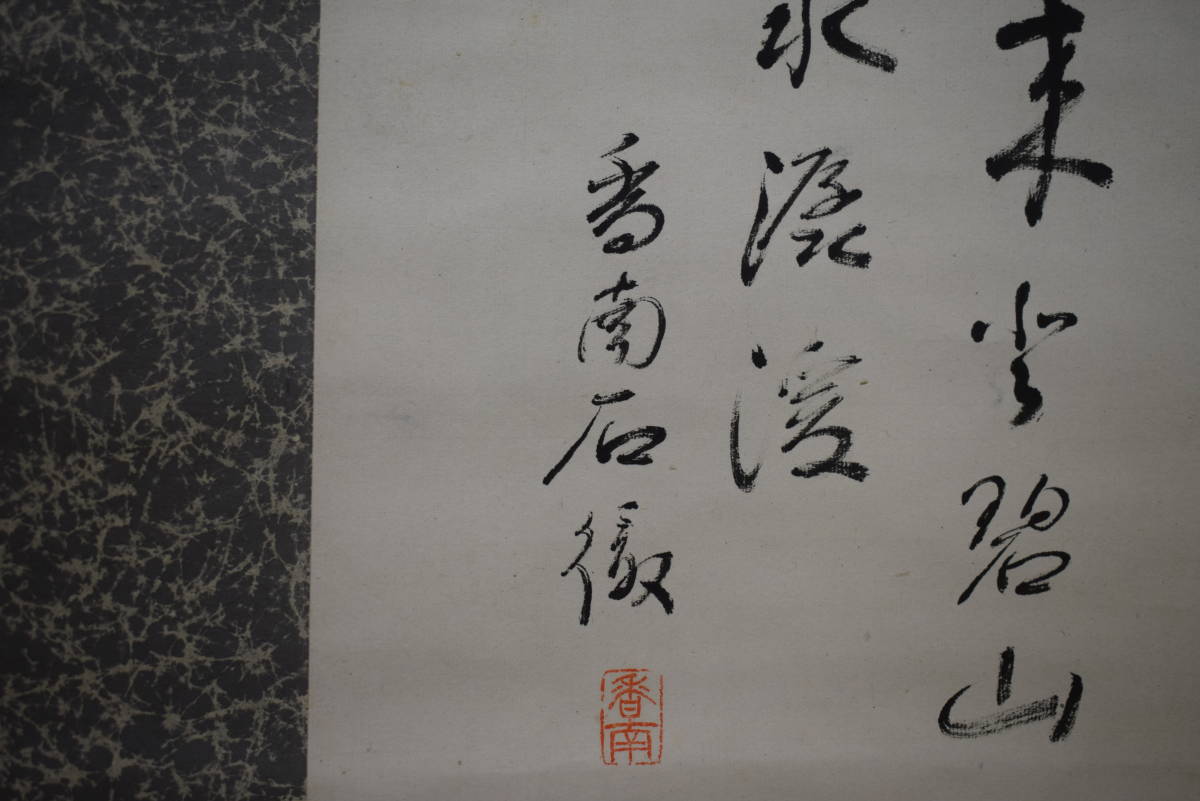 来登碧山
水潺湲
香南石徹
香南